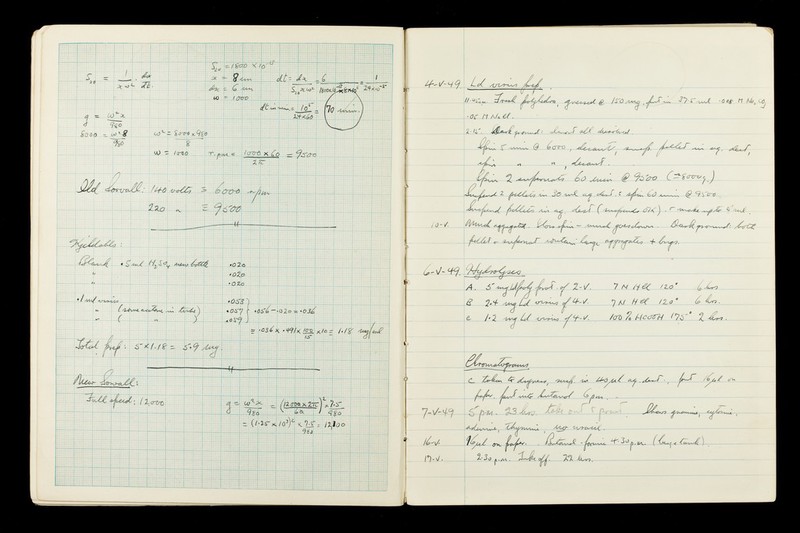 S₂₀ = 1/xω² · dx/dt.
S₂₀ = 1800 × 10⁻¹³
x = 8 cm
dx = 6 cm
ω = 1,000
dt = dx/S₂₀xω² = 6
dt in min = 10⁵/24×60 = 70 min.
g = ω²x/980
5000 = ω²·8/980
ω² = 5000×980/8
ω = 1000 r.p.m = 1000 × 60/2π = 9500
Old Sorvall: 140 volts ≡ 6000 rpm
220 " ≡ 9500
Kjeldahls:
Blank .5 ml H₂SO₄ new bottle .020
" .020
" .020
.1 ml virus .053
" (some in tube) .057 .056 - .020 = .036
" ( " ) .059
≡ .036 × .491 × 10 = 1.18 mg/ml
Total prep: 5 × 1.18 = 5.9 mg
New Sorvall:
Full speed: 12000 g = ω²x/980 = (12000×2π/60)² × 7.5/980
= (1.25 × 10³)² × 7.5/980 = 12,100
4-V-49. Ld virus prep.
11.45am. Fresh polyhedra, ground @ 150 mg. put in 37.5 ml .008 M Na₂CO₃
.05 M NaCl.
2.15. Dark ground: almost all dissolved.
Spin 5 min @ 6000, decant, pellet in aq. dest,
spin " " , decant.
Spin 2 supernats 60 min @ 9500 (≡ 8000g.)
Suspend 2 pellets in 30 ml aq dest & spin 60 min @ 9500.
Suspend pellets in aq. dest (suspends OK) & make up to 5 ml.
10-V. Much aggregated. Slow spin - much goes down. Dark ground: both
pellet & supernat contain large aggregates & bugs.
6-V-49. Hydrolyses
A. 5 mg Ld prot. of 2-V. 7 N HCl 120° 6 hrs
B 2.4 mg Ld virus of 4-V. 7 N HCl 120° 6 hrs.
C 1.2 mg Ld virus of 4-V. 100% HCOOH 175° 2 hrs.
Chromatograms
C taken to dryness, in 40 µl aq. dest., put 16 µl on
paper put into butanol 6 pm.
7-V-49 5 pm. 23 hrs take out & print. Shows guanine, cytosine,
adenine, thymine, no uracil.
16-V. 16 µl on paper. Butanol-formic 4.30 p.m. (large tank).
17-V. 2.30 p.m. Take off. 22 hrs.